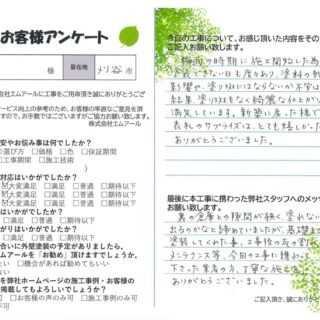 お客様アンケート
様
居在地
刈谷
市
式会社エムアールに工事をご用命頂き誠にありがとうござ
サービス向上の参考のため、お客様の率直なご意見を頂
すので、お手数ではございますがご協力お願い致します。
株式会社エムアール
安やお悩み事は何でしたか?
の選び方 □価格 □色 □保証期間
□工事期間 □施工技術
対応はいかがでしたか?
大変満足 □満足 □普通 □期待以下
はいかがでしたか?
大変満足 □満足 □普通 □期待以下
がりはいかがでしたか?
大変満足 □満足 □普通 □期待以下
合いに外壁塗装の予定がありましたら、
エムアールを「お勧め」頂けますでしょうか。
たい □機会があれば勧めてもいい
ない
を弊社ホームページの施工事例・お客様の
掲載してもよろしいでしょうか?
□お客様の声のみ可 □施工事例のみ可
不可
今回の工事について、お感じ頂いた内容をその
ご記入お願い致します。
梅雨の時期に施工開始した為
塗装できない日も度々あり、塗料の
影響や、塗りムラにはならないか不安は
結果、塗りムラもなく綺麗な仕上が
満足しています。新築に戻った様で
表札のサプライズは、とても嬉しかった
ありがとうございました。
最後に本工事に携わった弊社スタッフへのメッ
お願い致します。
裏の倉庫との隙間が狭く、塗れない
出るのかなと諦めていましたが、基礎まで
塗装してくれた事、工事後の
メンテナンス等、今回の工事に携わって
下さった業者の方、丁寧な施工を
ありがとうございました。
ご記入頂き、誠にありがとう